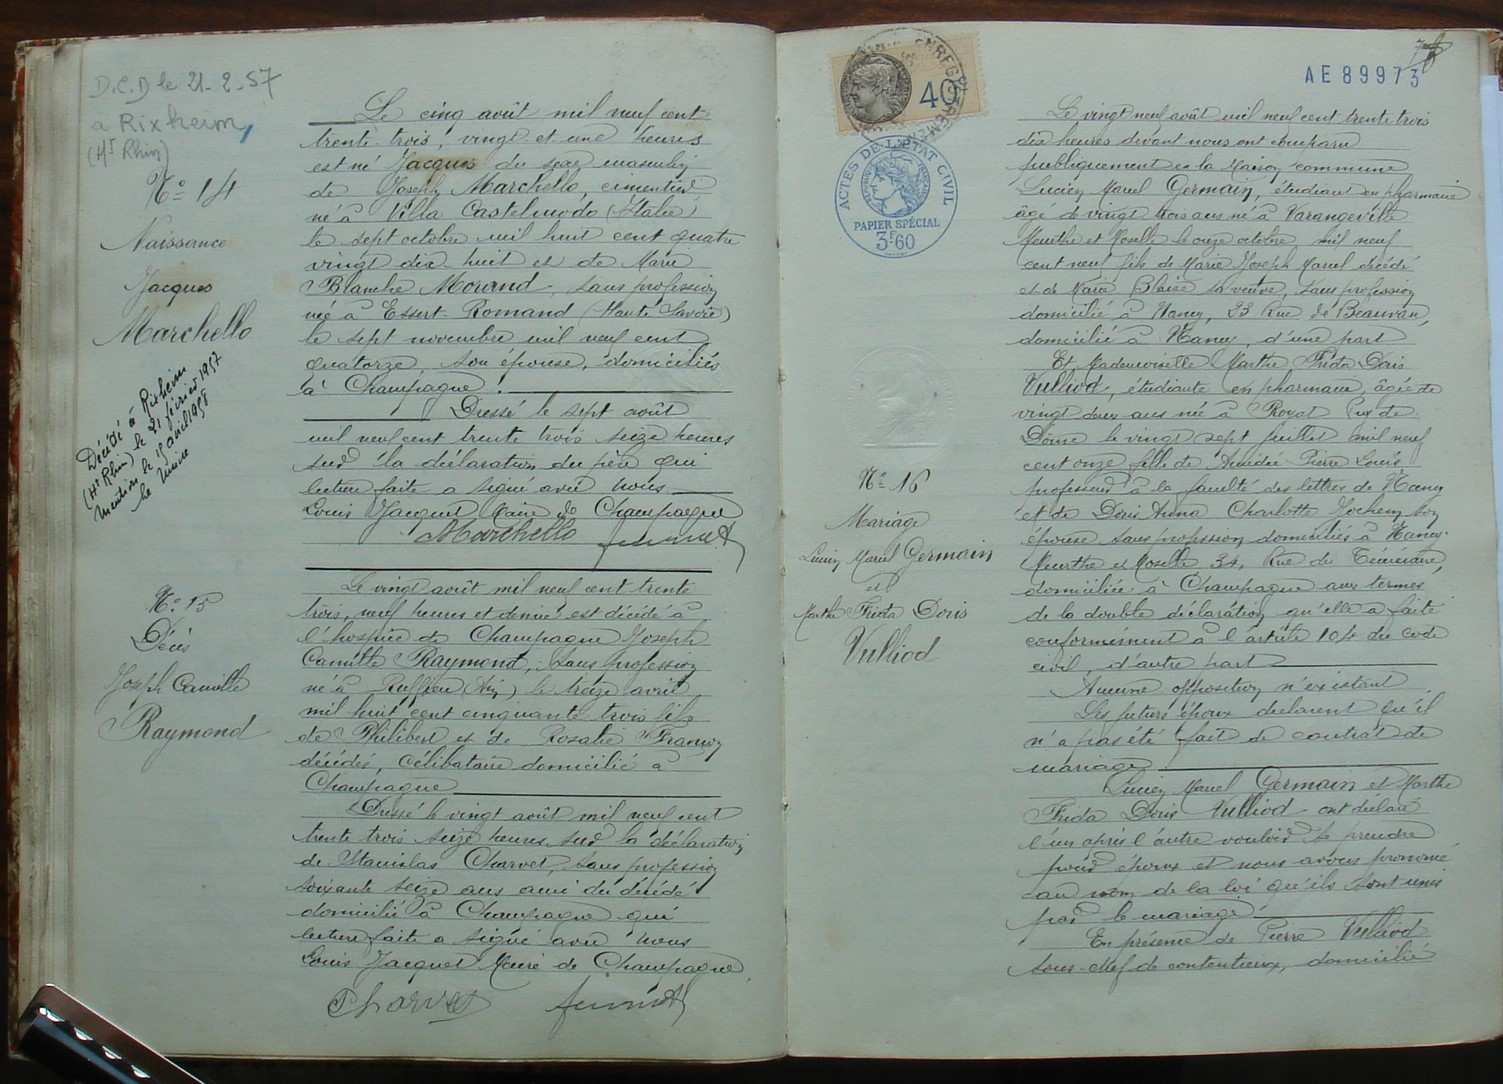 D.C.D le 21-2-57
a Rixheim,
(Ht Rhin)
No 14
Naissance
Jacques
Marchello
Décédé à Rixheim
(Ht Rhin) le 21 février 1957
Mention le 15 avril 1958
le Maire
Le cinq août mil neuf cent
trente trois, vingt et une heures
est né Jacques du sexe masculin
de Joseph Marchello, cimentier
né à Villa Castelnuodo (Italie)
le sept octobre mil huit cent quatre
vingt dix huit et de Marie
Blanche Morand, sans profession
née à Essert Romand (Haute Savoie)
le sept novembre mil neuf cent
quatorze, son épouse, domiciliés
à Champagne.
Dressé le sept août
mil neuf cent trente trois seize heures
sur la déclaration du père qui
lecture faite a signé avec nous
Louis Jacquet Maire de Champagne
Marchello
No 15
Décès
Joseph Camille
Raymond
Le vingt août mil neuf cent trente
trois, neuf heures et demie est décédé à
l'hospice de Champagne Joseph
Camille Raymond, sans profession
né à Ruffieu (Ain) le treize avril
mil huit cent cinquante trois fils
de Philibert et de Rozalie Francoz
décédés, célibataire domicilié à
Champagne
Dressé le vingt août mil neuf cent
trente trois seize heures sur la déclaration
de Stanislas Charvet, sans profession
soixante seize ans ami du décédé
domicilié à Champagne qui
lecture faite a signé avec nous
Louis Jacquet Maire de Champagne.
Charvet
40
ENREGISTREMENT
ACTES DE L'ETAT CIVIL
PAPIER SPÉCIAL
3F.60
AE 89973
No 16
Mariage
Lucien Marcel Germain
et
Marthe Frida Doris
Vulliod
Le vingt neuf août mil neuf cent trente trois
dix heures devant nous ont comparu
publiquement en la Maison commune
Lucien Marcel Germain, étudiant en pharmacie
âgé de vingt trois ans né à Varangéville
Meurthe et Moselle le onze octobre mil neuf
cent neuf fils de Marie Joseph Marcel décédé
et de Marie Blaise sa veuve, sans profession
domiciliée à Nancy, 23 Rue de Beauvau,
domicilié à Nancy, d'une part
Et Mademoiselle Marthe Frida Doris
Vulliod, étudiante en pharmacie, âgée de
vingt deux ans née à Royat Puy de
Dôme le vingt sept juillet mil neuf
cent onze fille de Amédée Pierre Louis
professeur à la faculté des lettres de Nancy
et de Doris Anna Charlotte Jochem son
épouse sans profession domiciliés à Nancy
Meurthe et Moselle 34, Rue du Téméraire,
domiciliée à Champagne aux termes
de la double déclaration qu'elle a faite
conformément à l'article 104 du code
civil, d'autre part
Aucune opposition n'existant
Les futurs époux déclarent qu'il
n'a pas été fait de contrat de
mariage
Lucien Marcel Germain et Marthe
Frida Doris Vulliod ont déclaré
l'un après l'autre vouloir se prendre
pour époux et nous avons prononcé
au nom de la loi qu'ils sont unis
par le mariage.
En présence de Pierre Vulliod
sous-chef de contentieux, domicilié